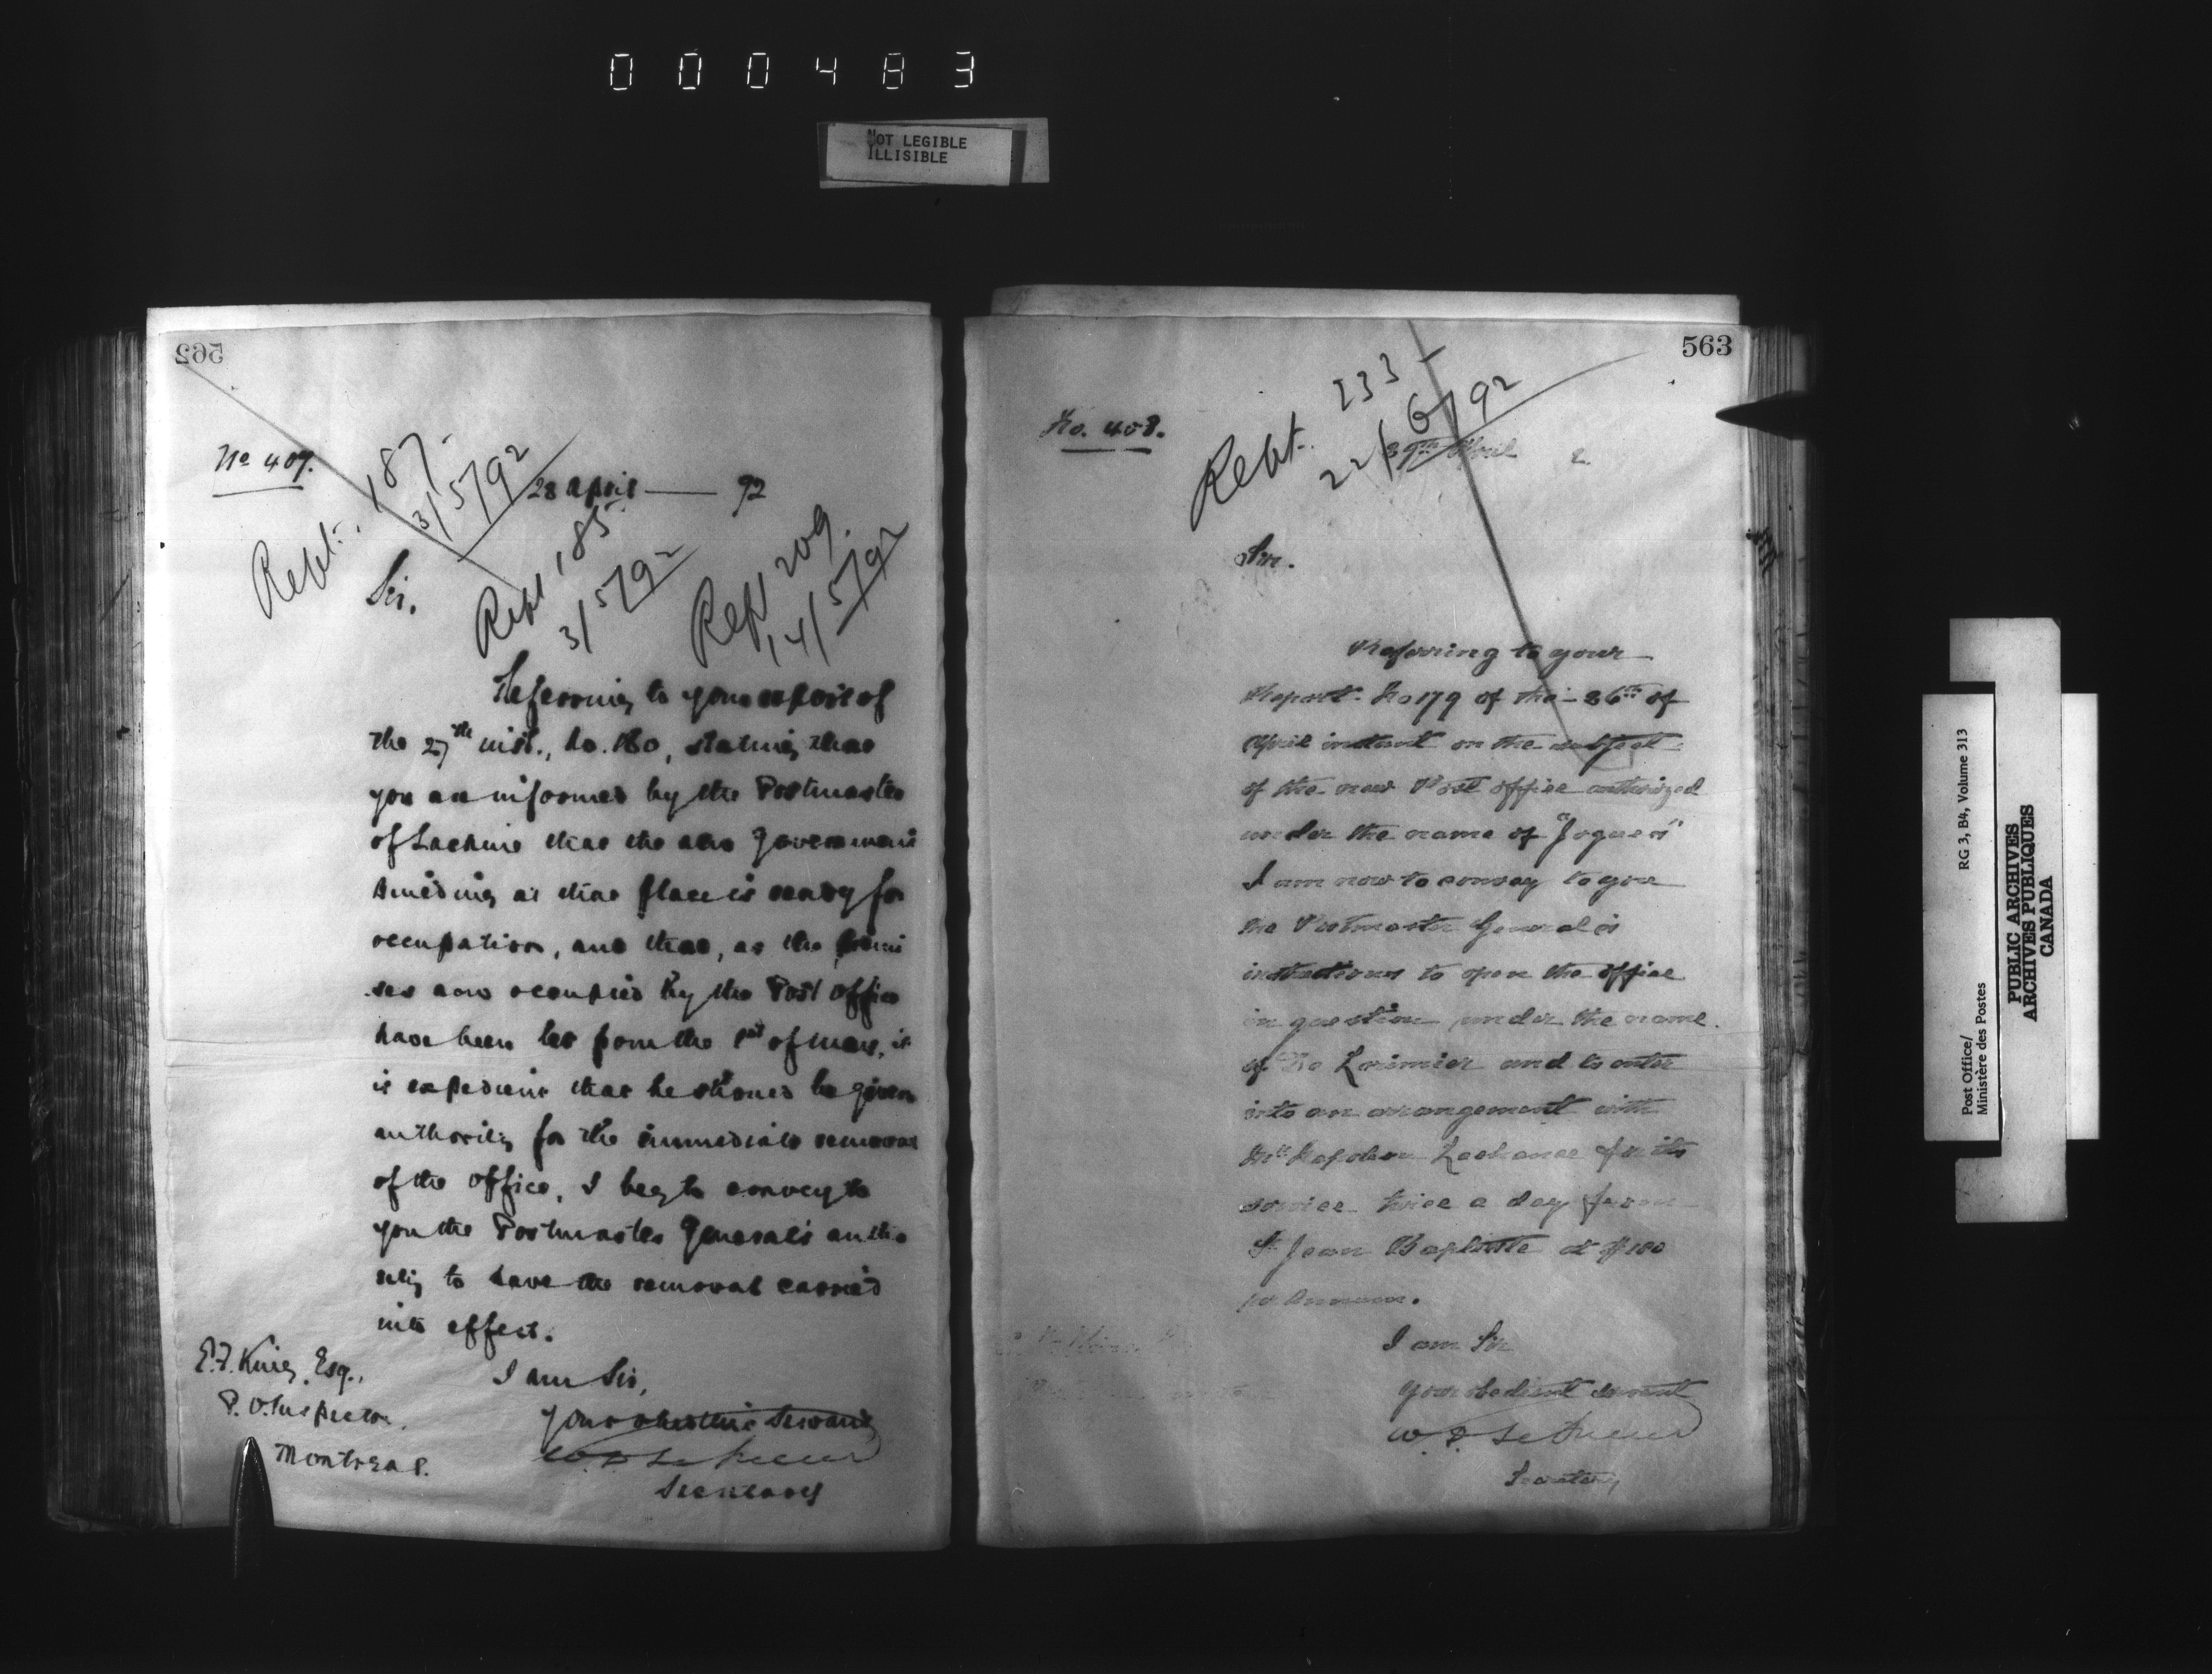 000483
NOT LEGIBLE
ILLISIBLE
562
No 407.
28 April —— 92
Rept. 187.
3/5/92
Rept 185
3/5/92
Rept 209.
14/5/92
Sir.
Referring to your report of
the 27th inst., No. 180, stating that
you are informed by the Postmaster
of Lachine that the new Government
Building at that place is ready for
occupation, and that, as the premi
ses now occupied by the Post Office
have been let from the 1st of May, it
is expedient that he should be given
authority for the immediate removal
of the office, I beg to convey to
you the Postmaster General's autho
rity to have the removal carried
into effect.
I am Sir,
Your obedient Servant
Secretary
E.F. King, Esq.,
P.O. Inspector,
Montreal.
563
No. 408.
Rept. 233
22/6/92
29th April 2.
Sir.
Referring to your
Report No 179 of the 26th of
April instant on the subject
of the new Post office authorized
under the name of "Jogues"
I am now to convey to you
the Postmaster General's
instructions to open the office
in question under the name
of De Lorimier and to enter
into an arrangement with
Mr Napoleon Lachance for its
service twice a day from
St Jean Baptiste at $180
per annum.
I am Sir
Your obedient servant
Secretary
Post Office/
Ministère des Postes
RG 3, B4, Volume 313
PUBLIC ARCHIVES
ARCHIVES PUBLIQUES
CANADA